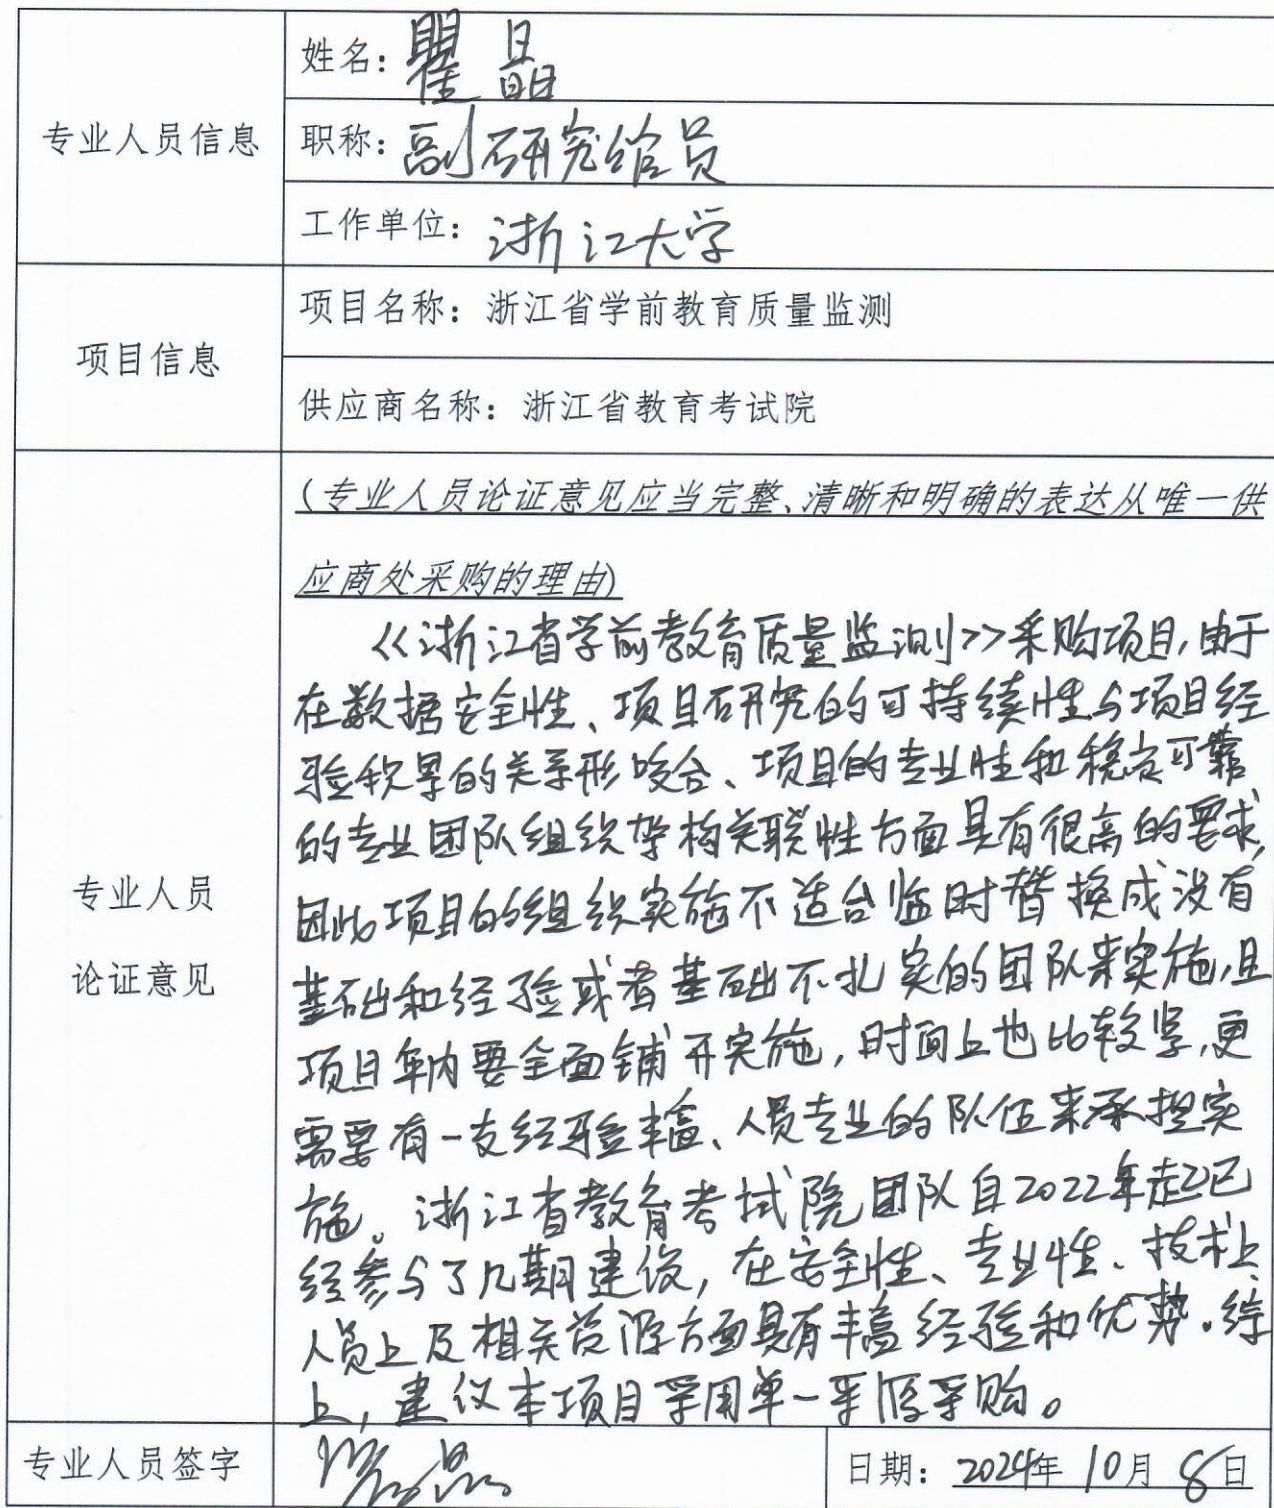 专业人员信息
姓名：瞿晶
职称：副研究馆员
工作单位：浙江大学
项目信息
项目名称：浙江省学前教育质量监测
供应商名称：浙江省教育考试院
专业人员
论证意见
(专业人员论证意见应当完整、清晰和明确的表达从唯一供
应商处采购的理由)
《浙江省学前教育质量监测》采购项目,由于
在数据安全性、项目研究的可持续性与项目经
验积累的关系形咬合、项目的专业性和稳定可靠
的专业团队组织架构关联性方面具有很高的要求,
因此项目的组织实施不适合临时替换成没有
基础和经验或者基础不扎实的团队来实施,且
项目年内要全面铺开实施,时间上也比较紧,更
需要有一支经验丰富、人员专业的队伍来承担实
施。浙江省教育考试院团队自2022年起已
经参与了几期建设,在安全性、专业性、技术上
人员上及相关资源方面具有丰富经验和优势.综
上,建议本项目采用单一来源采购。
专业人员签字
瞿晶
日期：2024年10月8日